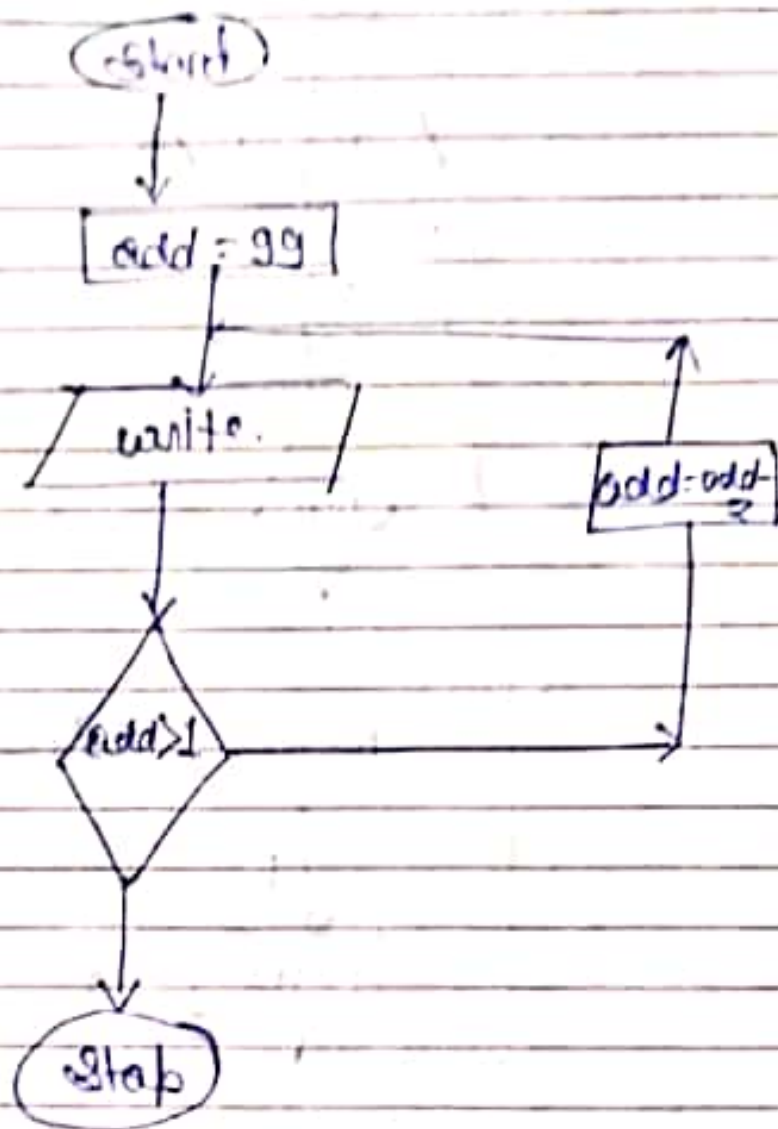 Start
add = 99
write.
add=add-
2
add>1
Stop